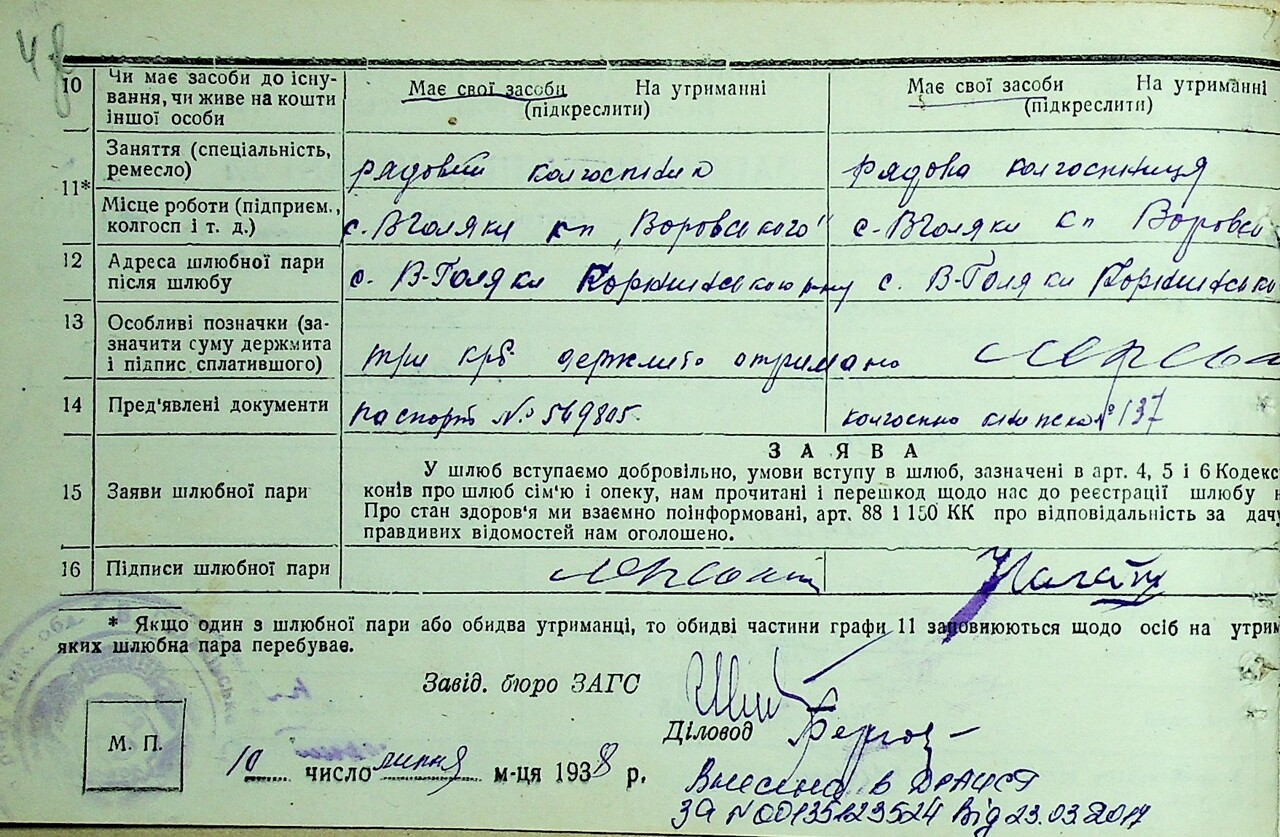 10 Чи має засоби до існування, чи живе на кошти іншої особи
Має свої засоби На утриманні
(підкреслити)
Має свої засоби На утриманні
(підкреслити)
11*
Заняття (спеціальність, ремесло)
рядовий колгоспник
рядова колгоспниця
Місце роботи (підприєм., колгосп і т. д.)
с. ВГоляки кп „Воровського"
с. ВГоляки кп Воровсь
12 Адреса шлюбної пари після шлюбу
с. В-Голяки
с. В-Голяки
13 Особливі позначки (зазначити суму держмита і підпис сплатившого)
три крб. держмито отримано
14 Пред'явлені документи
паспорт № 569805
№ 137
15 Заяви шлюбної пари
ЗАЯВА
У шлюб вступаємо добровільно, умови вступу в шлюб, зазначені в арт. 4, 5 і 6 Кодекс
конів про шлюб сім'ю і опеку, нам прочитані і перешкод щодо нас до реєстрації шлюбу н
Про стан здоров'я ми взаємно поінформовані, арт. 88 і 150 КК про відповідальність за дачу
правдивих відомостей нам оголошено.
16 Підписи шлюбної пари
* Якщо один з шлюбної пари або обидва утриманці, то обидві частини графи 11 заповнюються щодо осіб на утрим
яких шлюбна пара перебуває.
Завід. бюро ЗАГС
Діловод
М. П.
10 число липня м-ця 1938 р.
Внесена в ДРАЦСГ
за № 00135123524 від 23.03.2017